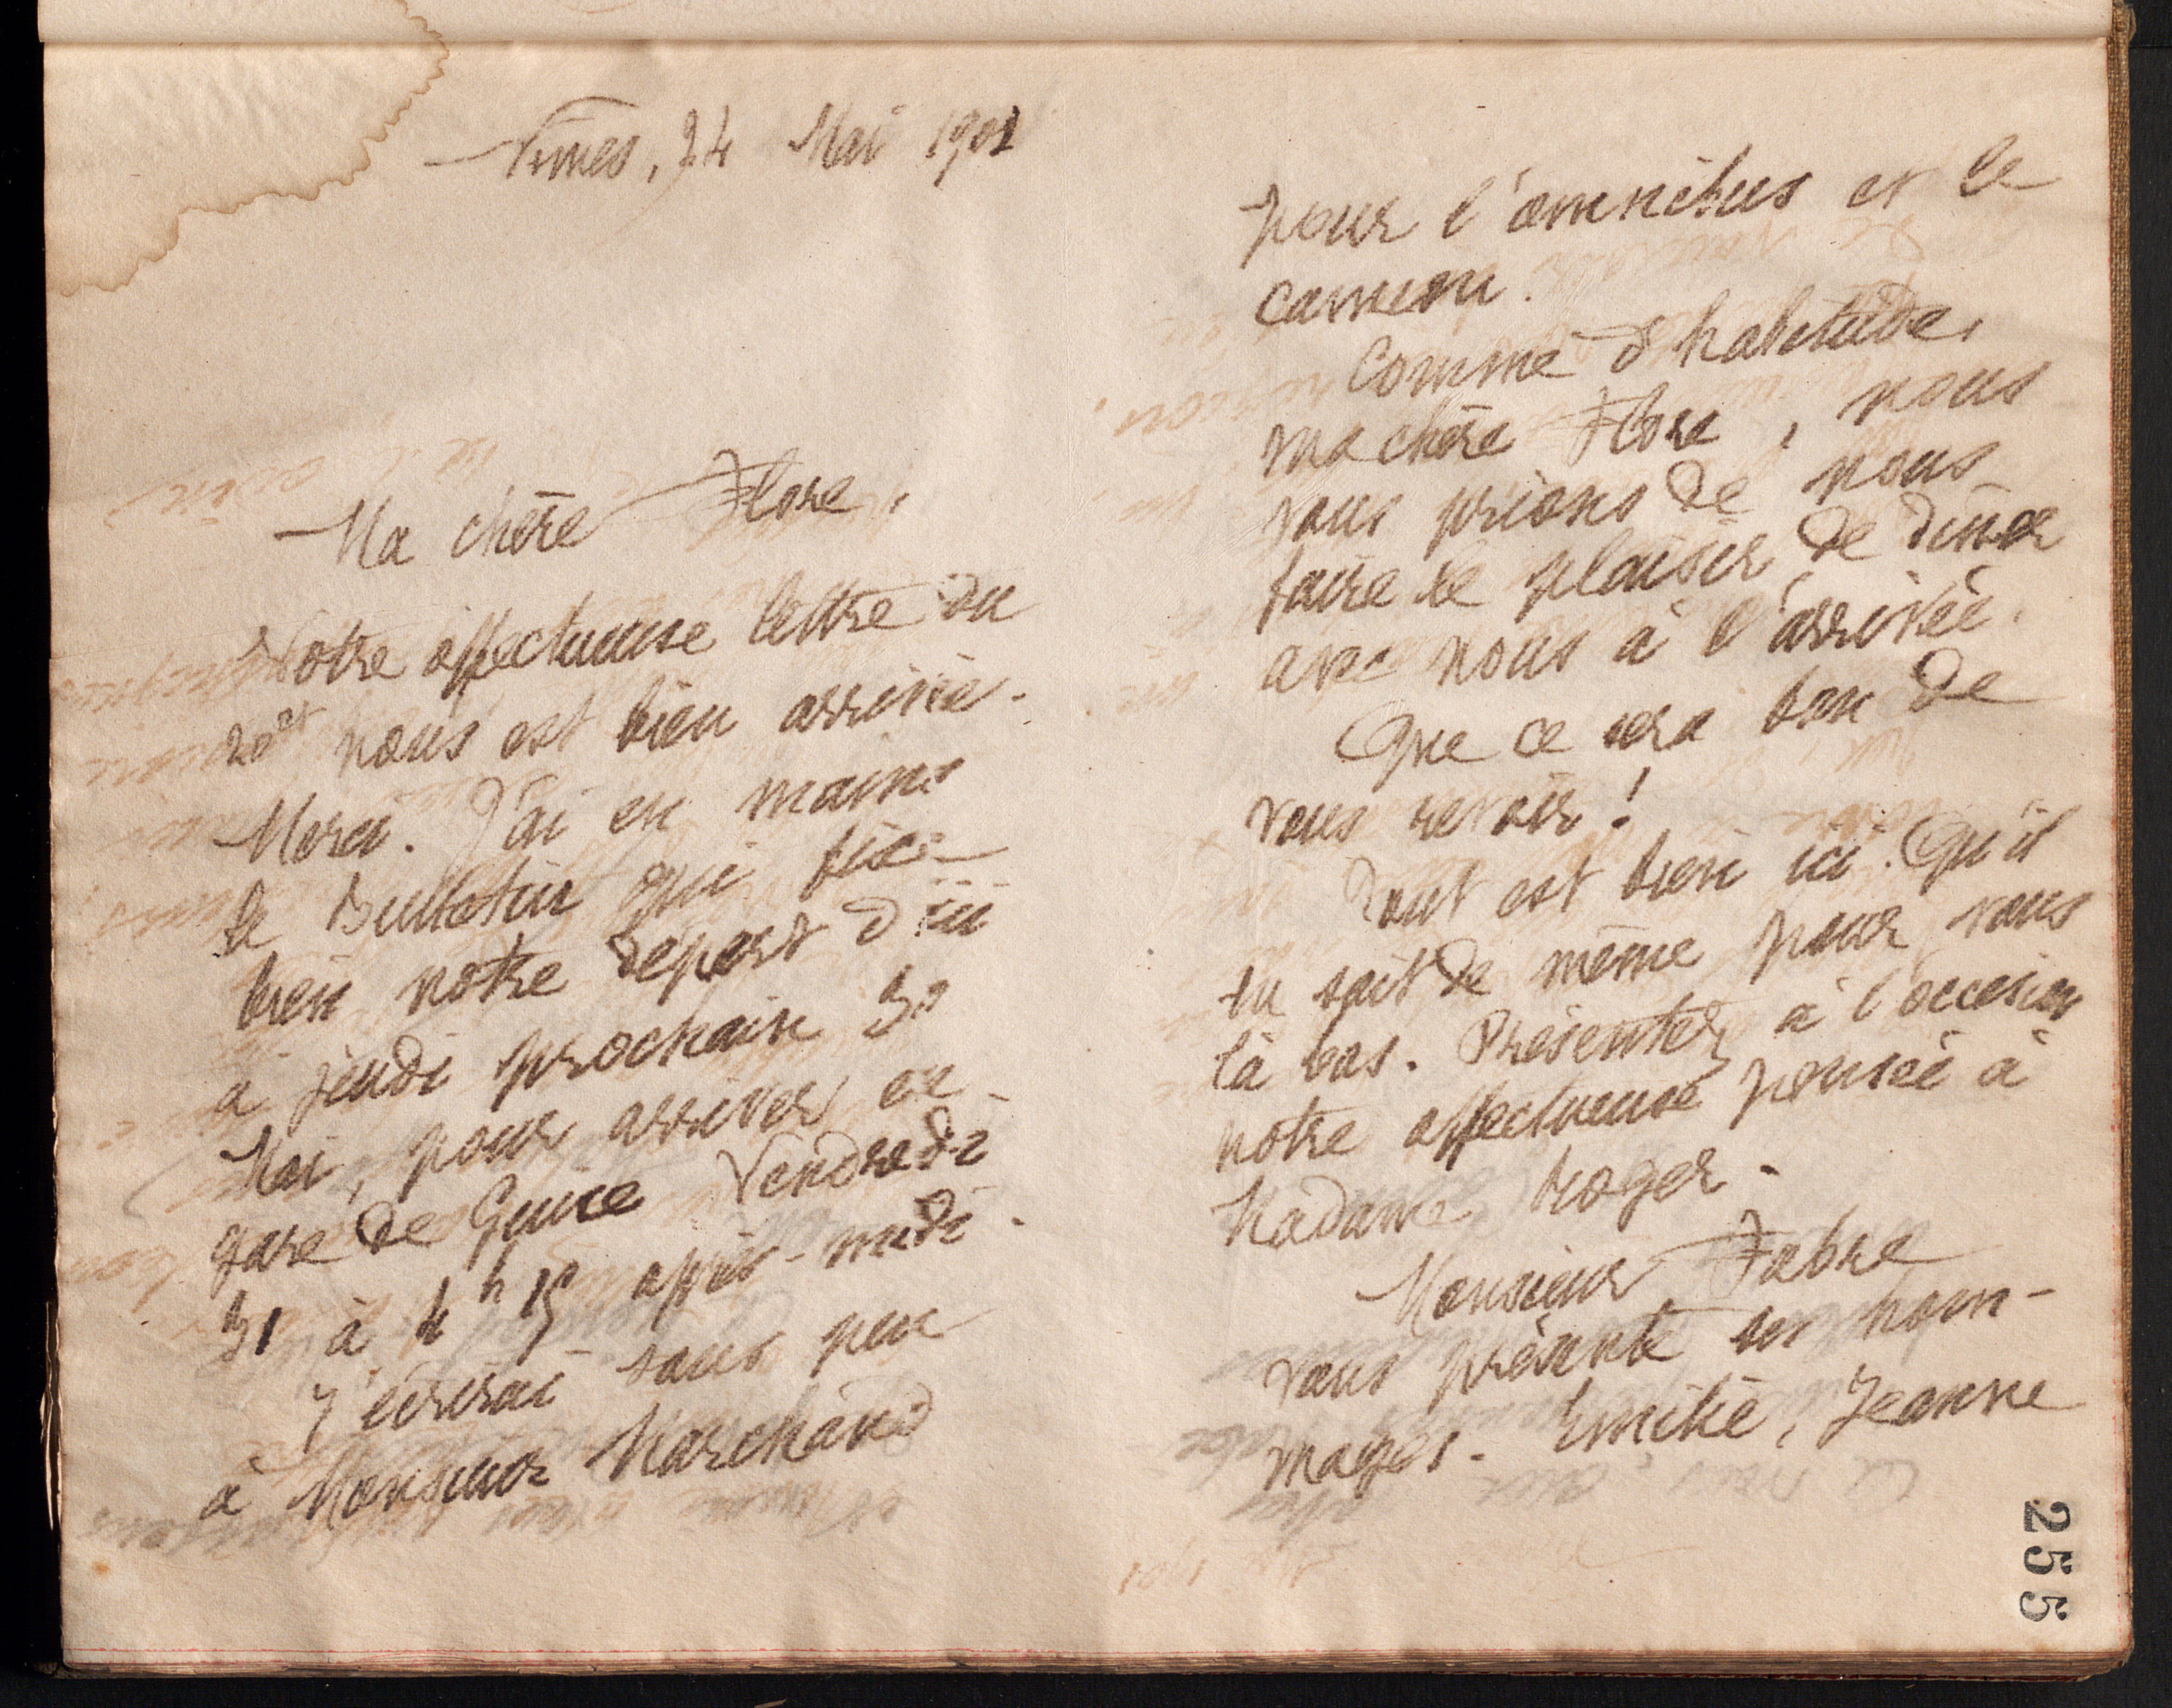 Nîmes, 24 Mai 1901
Ma chère Flore,
Votre affectueuse lettre du
20 ct nous est bien arrivée.
Merci. J'ai en mains
le Bulletin qui fixe
bien notre départ d'ici
à jeudi prochain 30
Mai, pour arriver en
gare de Guise Vendredi
31 à 4 h 15 après-midi.
J'écrirai sous peu
à Monsieur Marchand
pour l'omnibus et le
camion.
Comme d'habitude,
ma chère Flore, nous
vous prions de nous
faire le plaisir de dîner
avec nous à l'arrivée.
Que ce sera bon de
vous revoir!
Tout est bien ici. Qu'il
en soit de même pour vous
là bas. Présentez à l'occasion
notre affectueuse pensée à
Madame Roger.
Monsieur Fabre
vous présente ses hom-
mages. Emilie, Jeanne
255